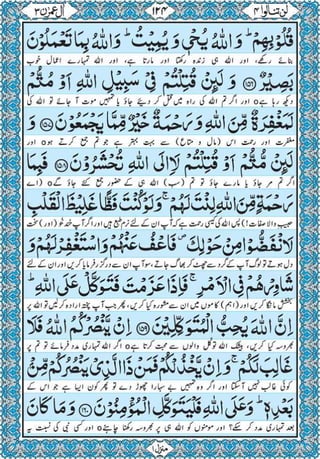 لن تنالوا ٤
١٢٤
اٰل عمرٰن ٣
قُلُوْبِهِمْ ؕ وَ اللّٰهُ يُحْیٖ وَ يُمِيْتُ ؕ وَ اللّٰهُ بِمَا تَعْمَلُوْنَ
بنائے رکھے، اور اللہ ہی زندہ رکھتا اور مارتا ہے، اور اللہ تمہارے اعمال خوب
بَصِيْرٌ ﴿۱۵۶﴾ وَ لَىِٕنْ قُتِلْتُمْ فِیْ سَبِيْلِ اللّٰهِ اَوْ مُتُّمْ
دیکھ رہا ہے o اور اگر تم اللہ کی راہ میں قتل کر دیئے جاؤ یا تمہیں موت آ جائے تو اللہ کی
لَمَغْفِرَةٌ مِّنَ اللّٰهِ وَ رَحْمَةٌ خَيْرٌ مِّمَّا يَجْمَعُوْنَ ﴿۱۵۷﴾ وَ
مغفرت اور رحمت اس (مال و متاع) سے بہت بہتر ہے جو تم جمع کرتے ہو o اور
لَىِٕنْ مُّتُّمْ اَوْ قُتِلْتُمْ لَاِلَی اللّٰهِ تُحْشَرُوْنَ ﴿۱۵۸﴾ فَبِمَا
اگر تم مر جاؤ یا مارے جاؤ تو تم (سب) اللہ ہی کے حضور جمع کئے جاؤ گے o (اے
رَحْمَةٍ مِّنَ اللّٰهِ لِنْتَ لَهُمْ ۚ وَ لَوْ كُنْتَ فَظًّا غَلِيْظَ الْقَلْبِ
حبیبِ والا صفات!) پس اللہ کی کیسی رحمت ہے کہ آپ ان کے لئے نرم طبع ہیں اور اگر آپ تُندخُو (اور) سخت
لَا نْفَضُّوْا مِنْ حَوْلِكَ ۪ فَاعْفُ عَنْهُمْ وَ اسْتَغْفِرْ لَهُمْ وَ
دل ہوتے تو لوگ آپ کے گرد سے چھٹ کر بھاگ جاتے، سو آپ ان سے درگزر فرمایا کریں اور ان کے لئے
شَاوِرْهُمْ فِی الْاَمْرِ ۚ فَاِذَا عَزَمْتَ فَتَوَكَّلْ عَلَی اللّٰهِ ؕ
بخشش مانگا کریں اور (اہم) کاموں میں ان سے مشورہ کیا کریں، پھر جب آپ پختہ ارادہ کر لیں تو اللہ پر
اِنَّ اللّٰهَ يُحِبُّ الْمُتَوَكِّلِيْنَ ﴿۱۵۹﴾ اِنْ يَّنْصُرْكُمُ اللّٰهُ فَلَا
بھروسہ کیا کریں، بیشک اللہ توکل والوں سے محبت کرتا ہے o اگر اللہ تمہاری مدد فرمائے تو تم پر
غَالِبَ لَكُمْ ۚ وَ اِنْ يَّخْذُلْكُمْ فَمَنْ ذَا الَّذِیْ يَنْصُرُكُمْ مِّنْۢ
کوئی غالب نہیں آسکتا اور اگر وہ تمہیں بے سہارا چھوڑ دے تو پھر کون ایسا ہے جو اس کے
بَعْدِهٖ ؕ وَ عَلَی اللّٰهِ فَلْيَتَوَكَّلِ الْمُؤْمِنُوْنَ ﴿۱۶۰﴾ وَ مَا كَانَ
بعد تمہاری مدد کر سکے؟ اور مومنوں کو اللہ ہی پر بھروسہ رکھنا چاہئے o اور کسی نبی کی نسبت یہ
منزل ١